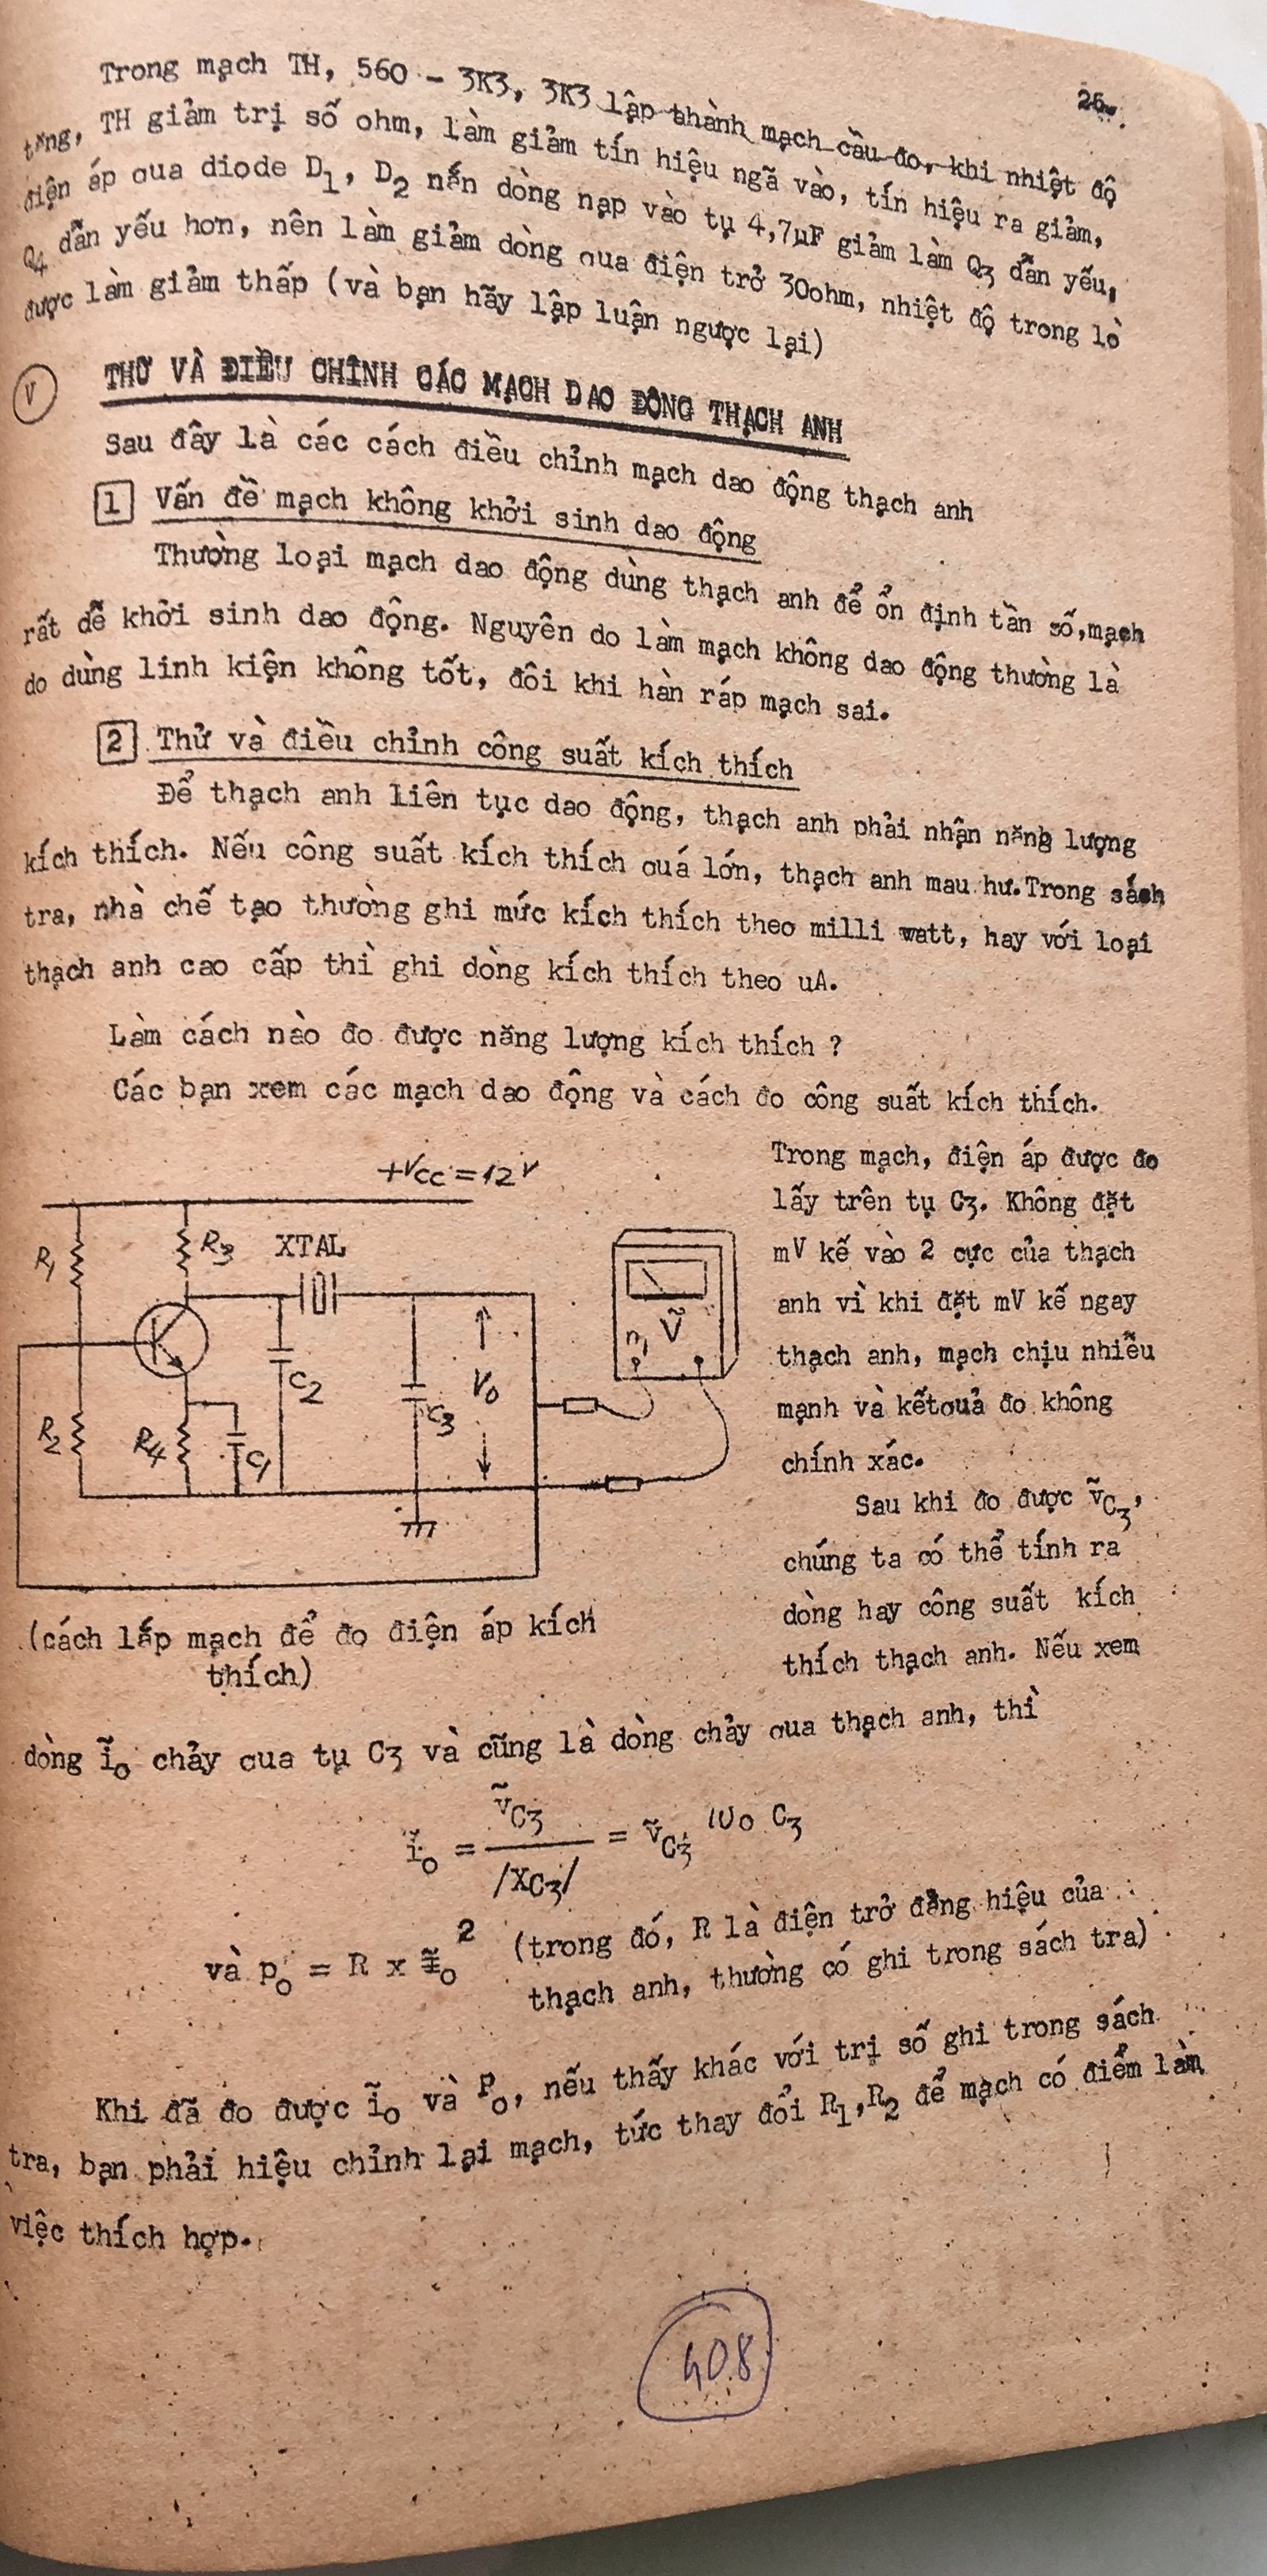 26.
Trong mạch TH, 560 - 3K3, 3K3 lập thành mạch cầu đo, khi nhiệt độ
tăng, TH giảm trị số ohm, làm giảm tín hiệu ngã vào, tín hiệu ra giảm,
điện áp qua diode D1, D2 nắn dòng nạp vào tụ 4,7µF giảm làm Q3 dẫn yếu,
Q4 dẫn yếu hơn, nên làm giảm dòng qua điện trở 30ohm, nhiệt độ trong lò
được làm giảm thấp (và bạn hãy lập luận ngược lại)
V THỬ VÀ ĐIỀU CHỈNH CÁC MẠCH DAO ĐỘNG THẠCH ANH
Sau đây là các cách điều chỉnh mạch dao động thạch anh
1 Vấn đề mạch không khởi sinh dao động
Thường loại mạch dao động dùng thạch anh để ổn định tần số,mạch
rất dễ khởi sinh dao động. Nguyên do làm mạch không dao động thường là
do dùng linh kiện không tốt, đôi khi hàn ráp mạch sai.
2 Thử và điều chỉnh công suất kích thích
Để thạch anh liên tục dao động, thạch anh phải nhận năng lượng
kích thích. Nếu công suất kích thích quá lớn, thạch anh mau hư.Trong sách
tra, nhà chế tạo thường ghi mức kích thích theo milli watt, hay với loại
thạch anh cao cấp thì ghi dòng kích thích theo uA.
Làm cách nào đo được năng lượng kích thích ?
Các bạn xem các mạch dao động và cách đo công suất kích thích.
+Vcc=12V
R1
R3
XTAL
C2
C3
V0
R2
R4
C1
m
Ṽ
(cách lắp mạch để đo điện áp kích
thích)
Trong mạch, điện áp được đo
lấy trên tụ C3. Không đặt
mV kế vào 2 cực của thạch
anh vì khi đặt mV kế ngay
thạch anh, mạch chịu nhiễu
mạnh và kếtquả đo không
chính xác.
Sau khi đo được ṽC3,
chúng ta có thể tính ra
dòng hay công suất kích
thích thạch anh. Nếu xem
dòng ĩo chảy qua tụ C3 và cũng là dòng chảy qua thạch anh, thì
ĩo = ṽC3 / /XC3/ = ṽC3 ωo C3
và po = R x Ĩo² (trong đó, R là điện trở đẳng hiệu của
thạch anh, thường có ghi trong sách tra)
Khi đã đo được ĩo và Po, nếu thấy khác với trị số ghi trong sách
tra, bạn phải hiệu chỉnh lại mạch, tức thay đổi R1,R2 để mạch có điểm làm
việc thích hợp.
408